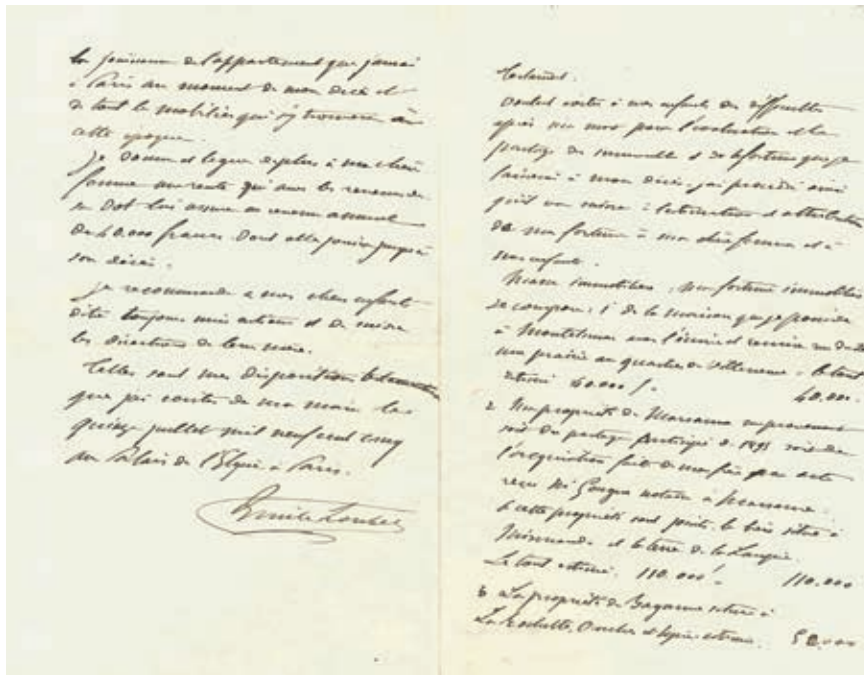 la jouissance de l'appartement que j'aurai
à Paris au moment de mon décès et
de tout le mobilier qui s'y trouvera à
cette époque.
Je donne et lègue de plus à ma chère
femme une rente qui avec les revenus de
sa Dot lui assure un revenu annuel
de 40.000 francs dont elle jouira jusqu'à
son décès.
Je recommande à mes chers enfants
d'être toujours unis entre eux et de suivre
les directions de leur mère.
Telles sont mes dispositions testamentaires
que j'ai écrites de ma main le
quinze juillet mil neuf cent cinq
au Palais de l'Elysée à Paris.
Emile Loubet
Testament.
Voulant éviter à mes enfants des difficultés
après ma mort pour l'évaluation et le
partage des immeubles et de la fortune que je
laisserai à mon décès, j'ai procédé ainsi
qu'il va suivre à l'estimation et attribution
de ma fortune à ma chère femme et à
mes enfants.
Masse immobilière, ma fortune immobilière
se compose: 1° de la maison que je possède
à Montélimar avec l'écurie et remise
une prairie au quartier de Villeneuve. le tout
estimé 40.000 f. 40.000.
2 Ma propriété de Marsanne en provenance
soit du partage anticipé de 1895 soit de
l'acquisition faite de mon frère par acte
reçu Me notaire à Marsanne.
à cette propriété sont joints le bois situé à
Mirmande et la terre de
Le tout estimé. 110.000 f. 110.000
3 La propriété de située à
La estimée. 50.000